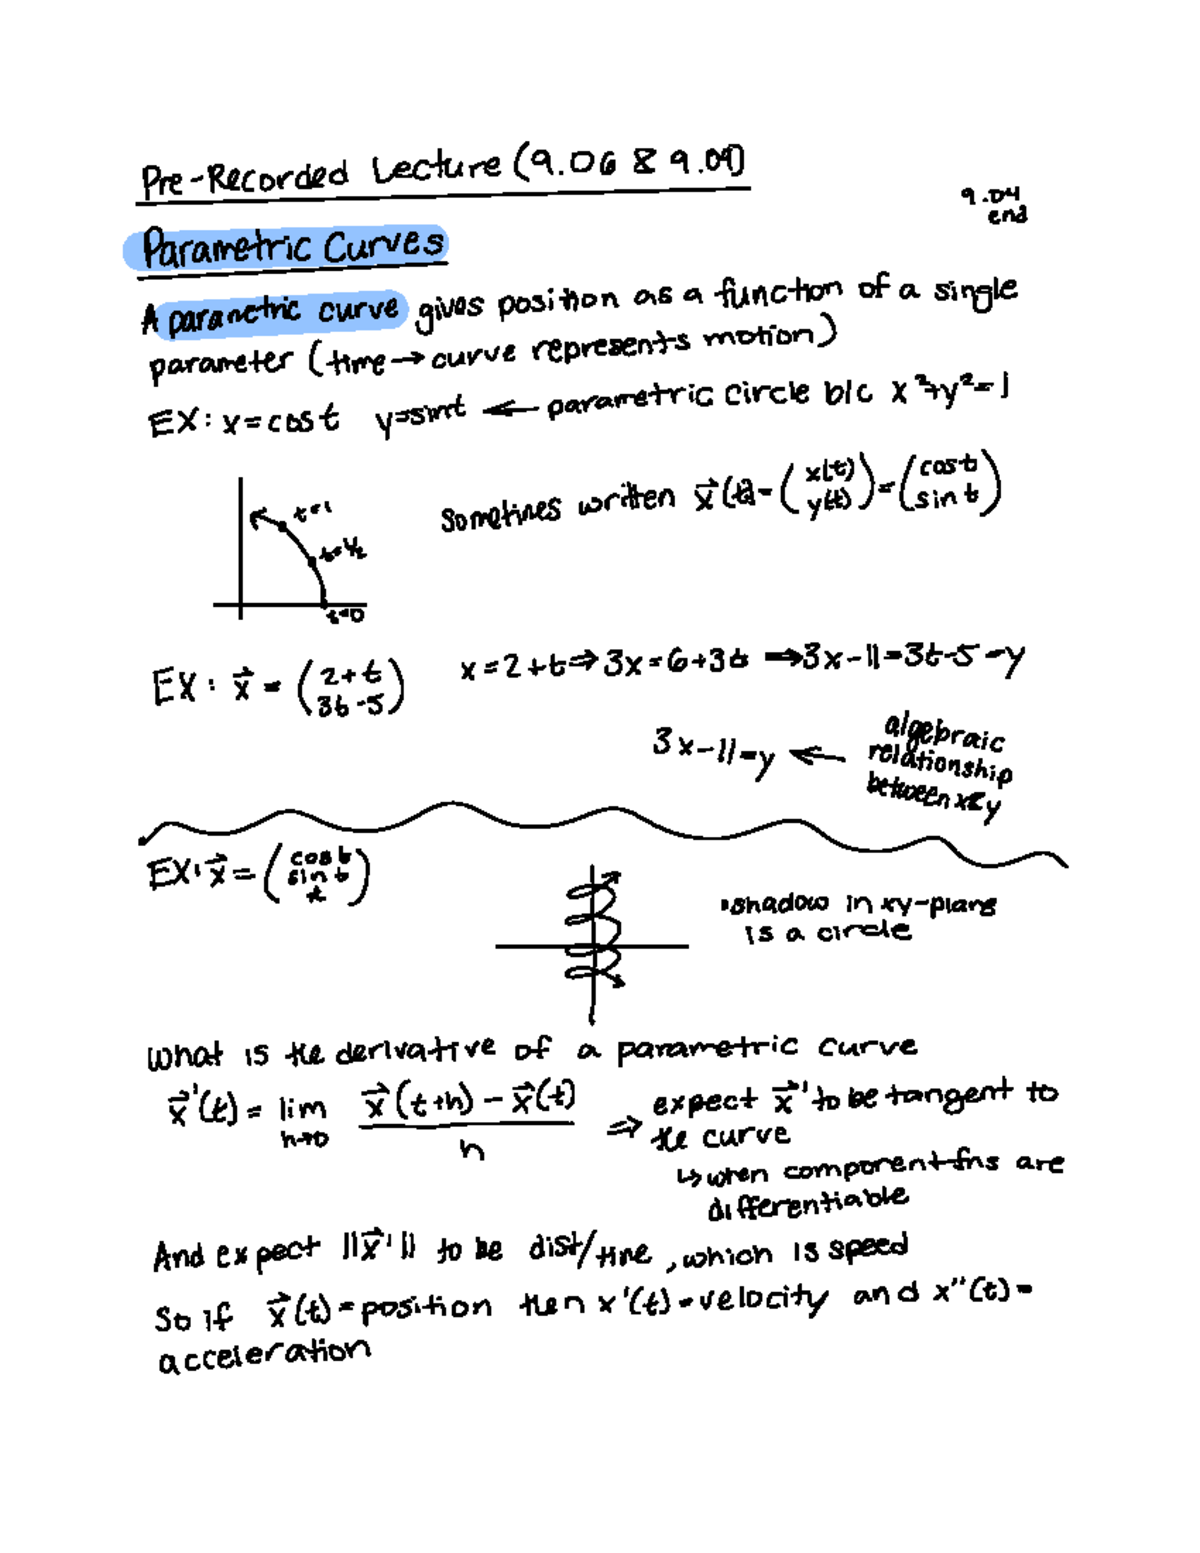 Pre-Recorded Lecture (9.06 & 9.09)
9.04
end
Parametric Curves
A parametric curve gives position as a function of a single
parameter (time → curve represents motion)
EX: x=cost y=sint ← parametric circle b/c x²+y²=1
Sometimes written x⃗(t)=(x(t) y(t))=(cost sint)
t=1
t=1/2
t=0
EX: x⃗ = (2+t 3t-5) x=2+t⇒3x=6+3t ⇒3x-11=3t-5=y
3x-11=y ← algebraic
relationship
between x&y
EX: x⃗=(cost sint t)
•shadow in xy-plane
is a circle
What is the derivative of a parametric curve
x⃗'(t) = lim h→0 (x⃗(t+h)-x⃗(t))/h ⇒ expect x⃗' to be tangent to
the curve
↳ when component fns are
differentiable
And expect ||x⃗'|| to be dist/time, which is speed
So if x⃗(t)=position then x'(t)=velocity and x''(t)=
acceleration